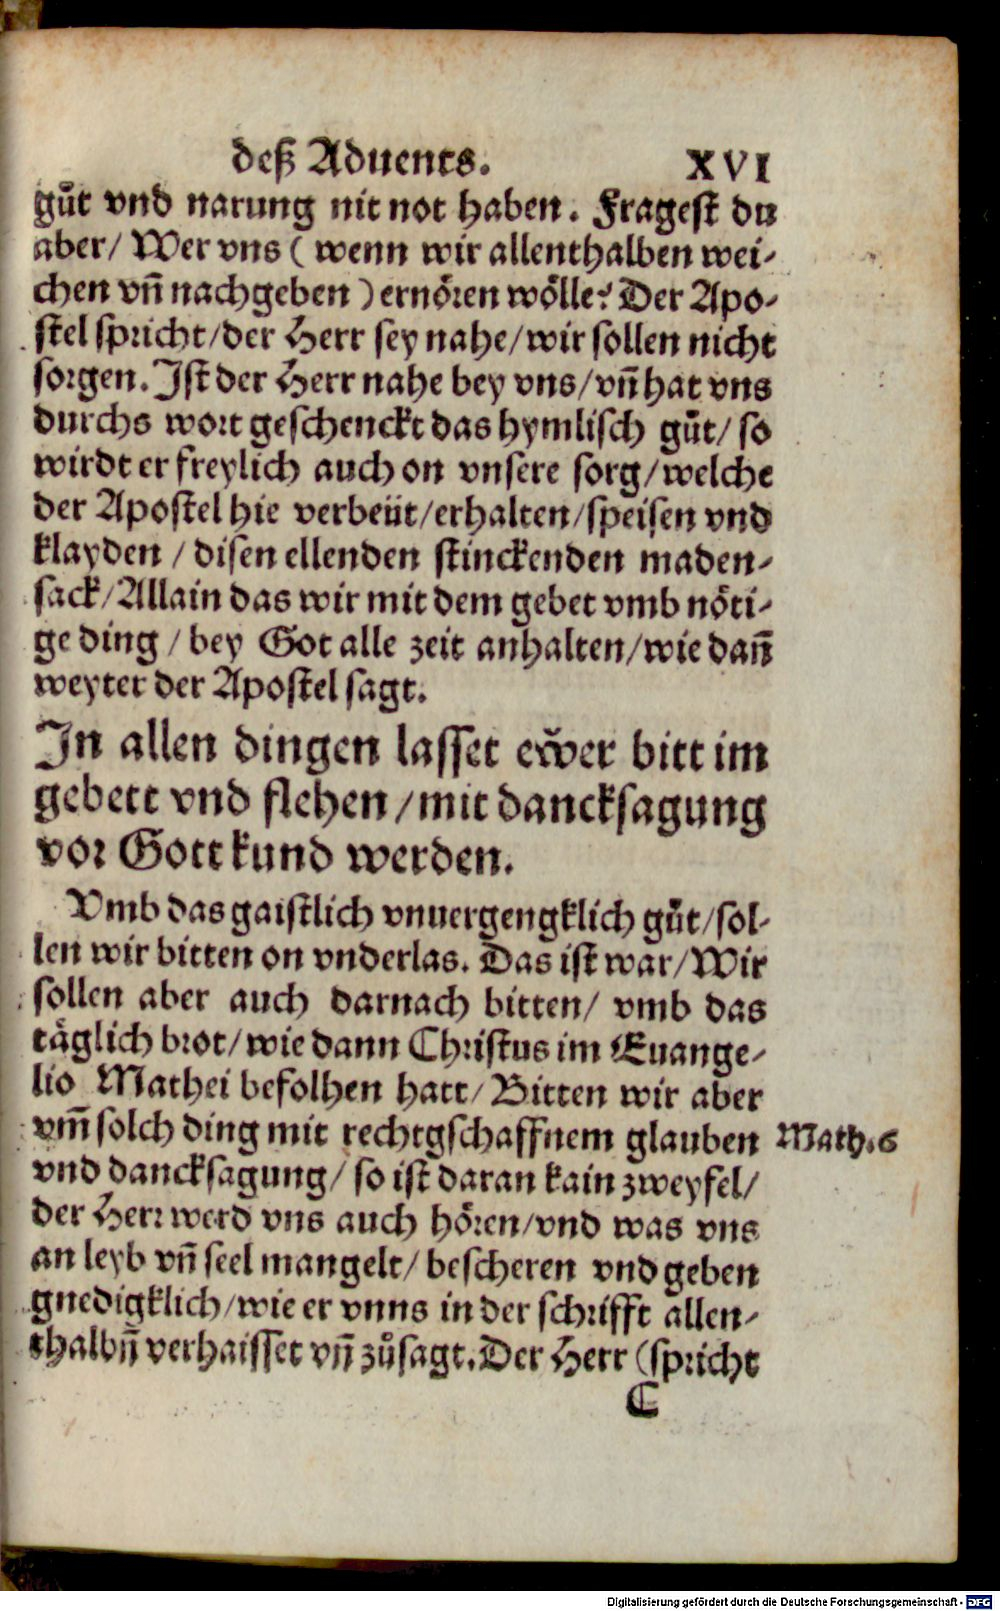 deß Aduents. XVI
gůt vnd narung nit not haben. Fragest du
aber/ Wer vns ( wenn wir allenthalben wei-
chen vñ nachgeben ) ernören wölle? Der Apo-
stel spricht/der Herr sey nahe/wir sollen nicht
sorgen. Ist der Herr nahe bey vns/vñ hat vns
durchs wort geschenckt das hymlisch gůt/ so
wirdt er freylich auch on vnsere sorg/welche
der Apostel hie verbeüt/erhalten/speisen vnd
klayden / disen ellenden stinckenden maden-
sack/Allain das wir mit dem gebet vmb nöti-
ge ding / bey Got alle zeit anhalten/wie dañ
weyter der Apostel sagt.
In allen dingen lasset ewer bitt im
gebett vnd flehen/mit dancksagung
vor Gott kund werden.
Vmb das gaistlich vnuergengklich gůt/sol-
len wir bitten on vnderlas. Das ist war/Wir
sollen aber auch darnach bitten/ vmb das
täglich brot/wie dann Christus im Euange-
lio Mathei befolhen hatt/ Bitten wir aber
vm̃ solch ding mit rechtgschaffnem glauben Math.6
vnd dancksagung/ so ist daran kain zweyfel/
der Herr werd vns auch hören/vnd was vns
an leyb vñ seel mangelt/ bescheren vnd geben
gnedigklich/wie er vnns in der schrifft allen-
thalbñ verhaisset vñ zůsagt. Der Herr (spricht
C
Digitalisierung gefördert durch die Deutsche Forschungsgemeinschaft - DFG